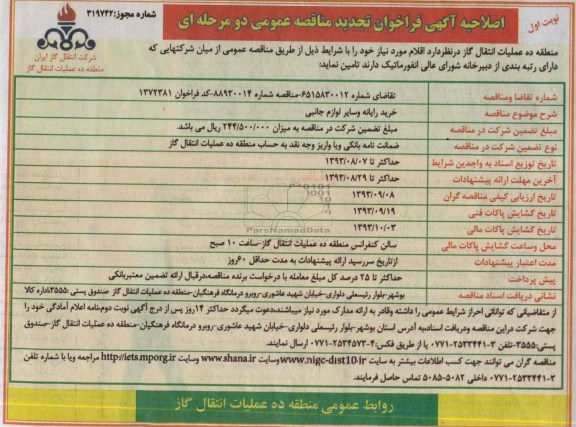 نوبت اول
اصلاحیه آگهی فراخوان تجدید مناقصه عمومی دو مرحله ای
شماره مجوز:۳۱۹۷۴۲
شرکت انتقال گاز ایران
منطقه ده عملیات انتقال گاز
منطقه ده عملیات انتقال گاز درنظردارد اقلام مورد نیاز خود را با شرایط ذیل از طریق مناقصه عمومی از میان شرکتهایی که
دارای رتبه بندی از دبیرخانه شورای عالی انفورماتیک دارند تامین نماید:
شماره تقاضا ومناقصه
تقاضای شماره ۶۵۱۵۸۳۰۰۱۲-مناقصه شماره ۸۸۹۳۰۰۱۴-کد فراخوان ۱۳۷۲۳۸۱
شرح موضوع مناقصه
خرید رایانه وسایر لوازم جانبی
مبلغ تضمین شرکت در مناقصه
مبلغ تضمین شرکت در مناقصه به میزان ۲۴۴/۵۰۰/۰۰۰ ریال می باشد.
نوع تضمین شرکت در مناقصه
ضمانت نامه بانکی ویا واریز وجه نقد به حساب منطقه ده عملیات انتقال گاز
تاریخ توزیع اسناد به واجدین شرایط
حداکثر تا ۱۳۹۳/۰۸/۰۷
آخرین مهلت ارائه پیشنهادات
حداکثر تا ۱۳۹۳/۰۸/۲۹
تاریخ ارزیابی کیفی مناقصه گران
۱۳۹۳/۰۹/۰۸
تاریخ گشایش پاکات فنی
۱۳۹۳/۰۹/۱۹
تاریخ گشایش پاکات مالی
۱۳۹۳/۱۰/۰۳
محل وساعت گشایش پاکات مالی
سالن کنفرانس منطقه ده عملیات انتقال گاز-ساعت ۱۰ صبح
مدت اعتبار پیشنهادات
ازتاریخ سررسید ارائه پیشنهادات به مدت حداقل ۶۰روز
پیش پرداخت
حداکثر تا ۲۵ درصد کل مبلغ معامله با درخواست برنده مناقصه،درقبال ارائه تضمین معتبربانکی
نشانی دریافت اسناد مناقصه
بوشهر-بلوار رئیسعلی دلواری-خیابان شهید عاشوری-روبرو درمانگاه فرهنگیان-منطقه ده عملیات انتقال گاز صندوق پستی ۳۵۵۵:اداره کالا
از متقاضیانی که توانائی احراز شرایط عمومی را داشته وقادر به ارائه مدارک مورد نیاز میباشند،دعوت میگردد حداکثر ۱۴روز پس از درج آگهی نوبت دوم،نامه اعلام آمادگی خود را
جهت شرکت دراین مناقصه ودریافت اسنادبه آدرس استان بوشهر-بلوار رئیسعلی دلواری-خیابان شهید عاشوری-روبرو درمانگاه فرهنگیان-منطقه ده عملیات انتقال گاز-صندوق
پستی:۳۵۵۵-تلفن ۳-۰۷۷۱-۲۵۳۳۴۴۱ یا از طریق فکس:۴-۰۷۷۱-۲۵۳۴۵۷۳ ارسال نمایند.
مناقصه گران می توانند جهت کسب اطلاعات بیشتر به سایت www.nigc-dist10.ir وسایت www.shana.ir وسایت http://iets.mporg.ir مراجعه ویا با شماره تلفن
۳-۰۷۷۱-۲۵۳۳۴۴۱ داخلی ۵۰۸۲-۵۰۸۵ تماس حاصل فرمایند.
روابط عمومی منطقه ده عملیات انتقال گاز
ParsNamadData